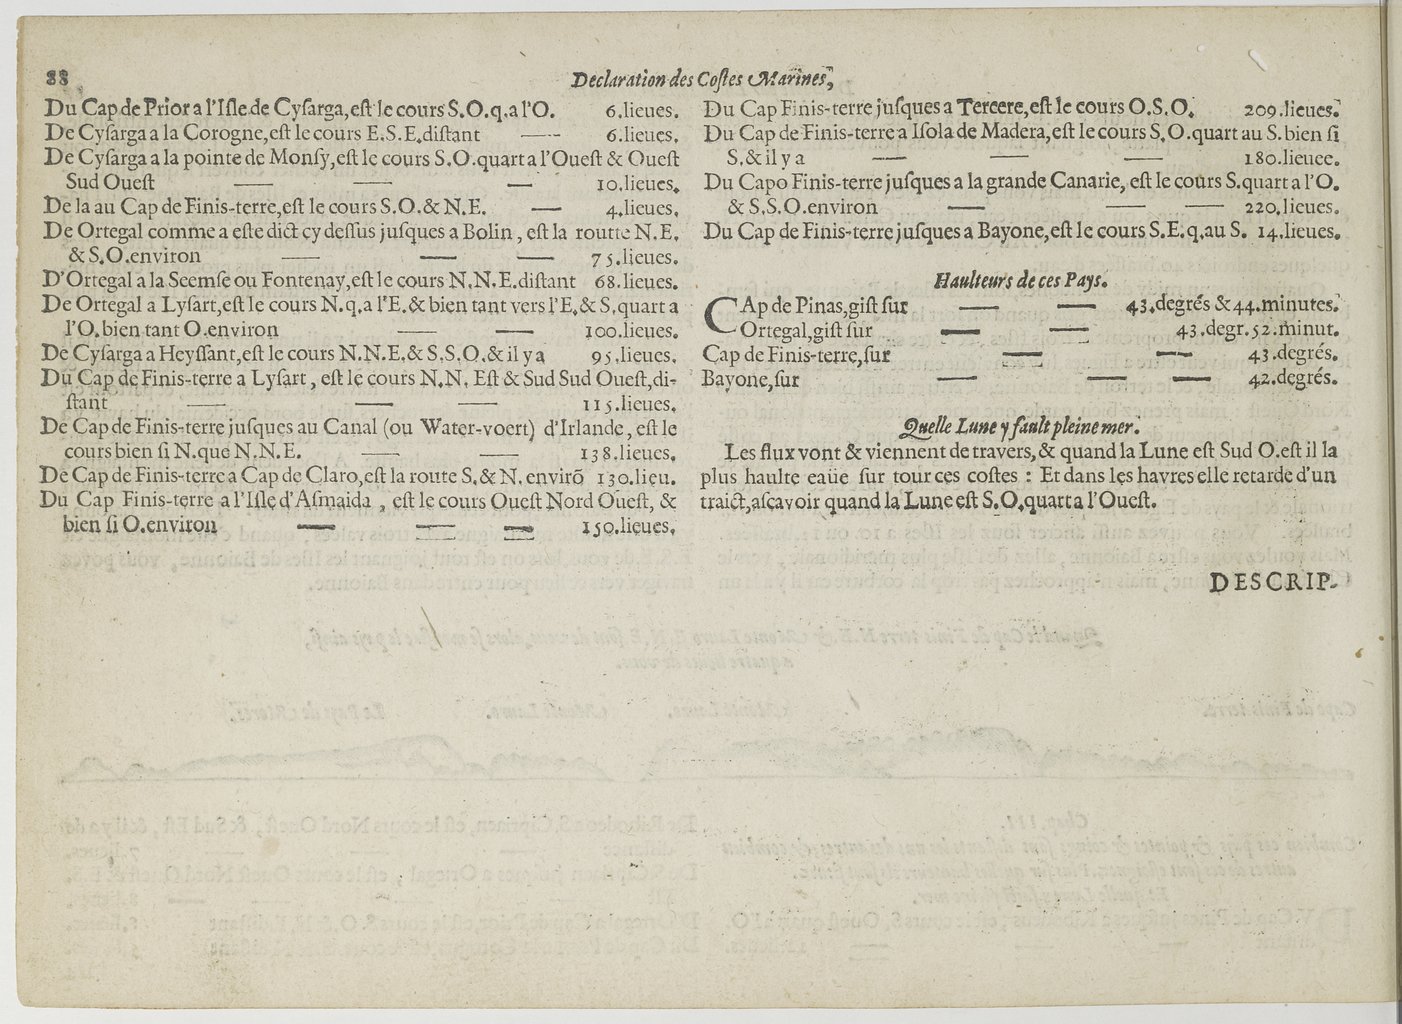 88
Declaration des Costes Marines,
Du Cap de Prior a l'Isle de Cysarga, est le cours S.O.q.a l'O. 6.lieues.
De Cysarga a la Corogne, est le cours E.S.E. distant 6.lieues.
De Cysarga a la pointe de Monsy, est le cours S.O.quart a l'Ouest & Ouest
Sud Ouest 10.lieues.
De la au Cap de Finis-terre, est le cours S.O. & N.E. 4.lieues.
De Ortegal comme a este dict cy dessus jusques a Bolin, est la routte N.E.
& S.O. environ 75.lieues.
D'Ortegal a la Seemse ou Fontenay, est le cours N.N.E. distant 68.lieues.
De Ortegal a Lysart, est le cours N.q.a l'E. & bien tant vers l'E, & S.quart a
l'O. bien tant O. environ 100.lieues.
De Cysarga a Heyssant, est le cours N.N.E. & S.S.O. & il y a 95.lieues.
Du Cap de Finis-terre a Lysart, est le cours N.N. Est & Sud Sud Ouest, di-
stant 115.lieues.
De Cap de Finis-terre jusques au Canal (ou Water-voert) d'Irlande, est le
cours bien si N. que N.N.E. 138.lieues.
De Cap de Finis-terre a Cap de Claro, est la route S. & N. envirõ 130.lieu.
Du Cap Finis-terre a l'Isle d'Asmaida, est le cours Ouest Nord Ouest, &
bien si O. environ 150.lieues.
Du Cap Finis-terre jusques a Tercere, est le cours O.S.O. 209.lieues.
Du Cap de Finis-terre a Isola de Madera, est le cours S.O.quart au S. bien si
S. & il y a 180.lieuee.
Du Capo Finis-terre jusques a la grande Canarie, est le cours S.quart a l'O.
& S.S.O. environ 220.lieues.
Du Cap de Finis-terre jusques a Bayone, est le cours S.E.q.au S. 14.lieues.
Haulteurs de ces Pays.
CAp de Pinas, gist sur 43.degrés & 44.minutes.
Ortegal, gist sur 43.degr. 52.minut.
Cap de Finis-terre, sur 43.degrés.
Bayone, sur 42.degrés.
Quelle Lune y fault pleine mer.
Les flux vont & viennent de travers, & quand la Lune est Sud O. est il la
plus haulte eaüe sur tour ces costes : Et dans les havres elle retarde d'un
traict, asçavoir quand la Lune est S.O.quart a l'Ouest.
DESCRIP-